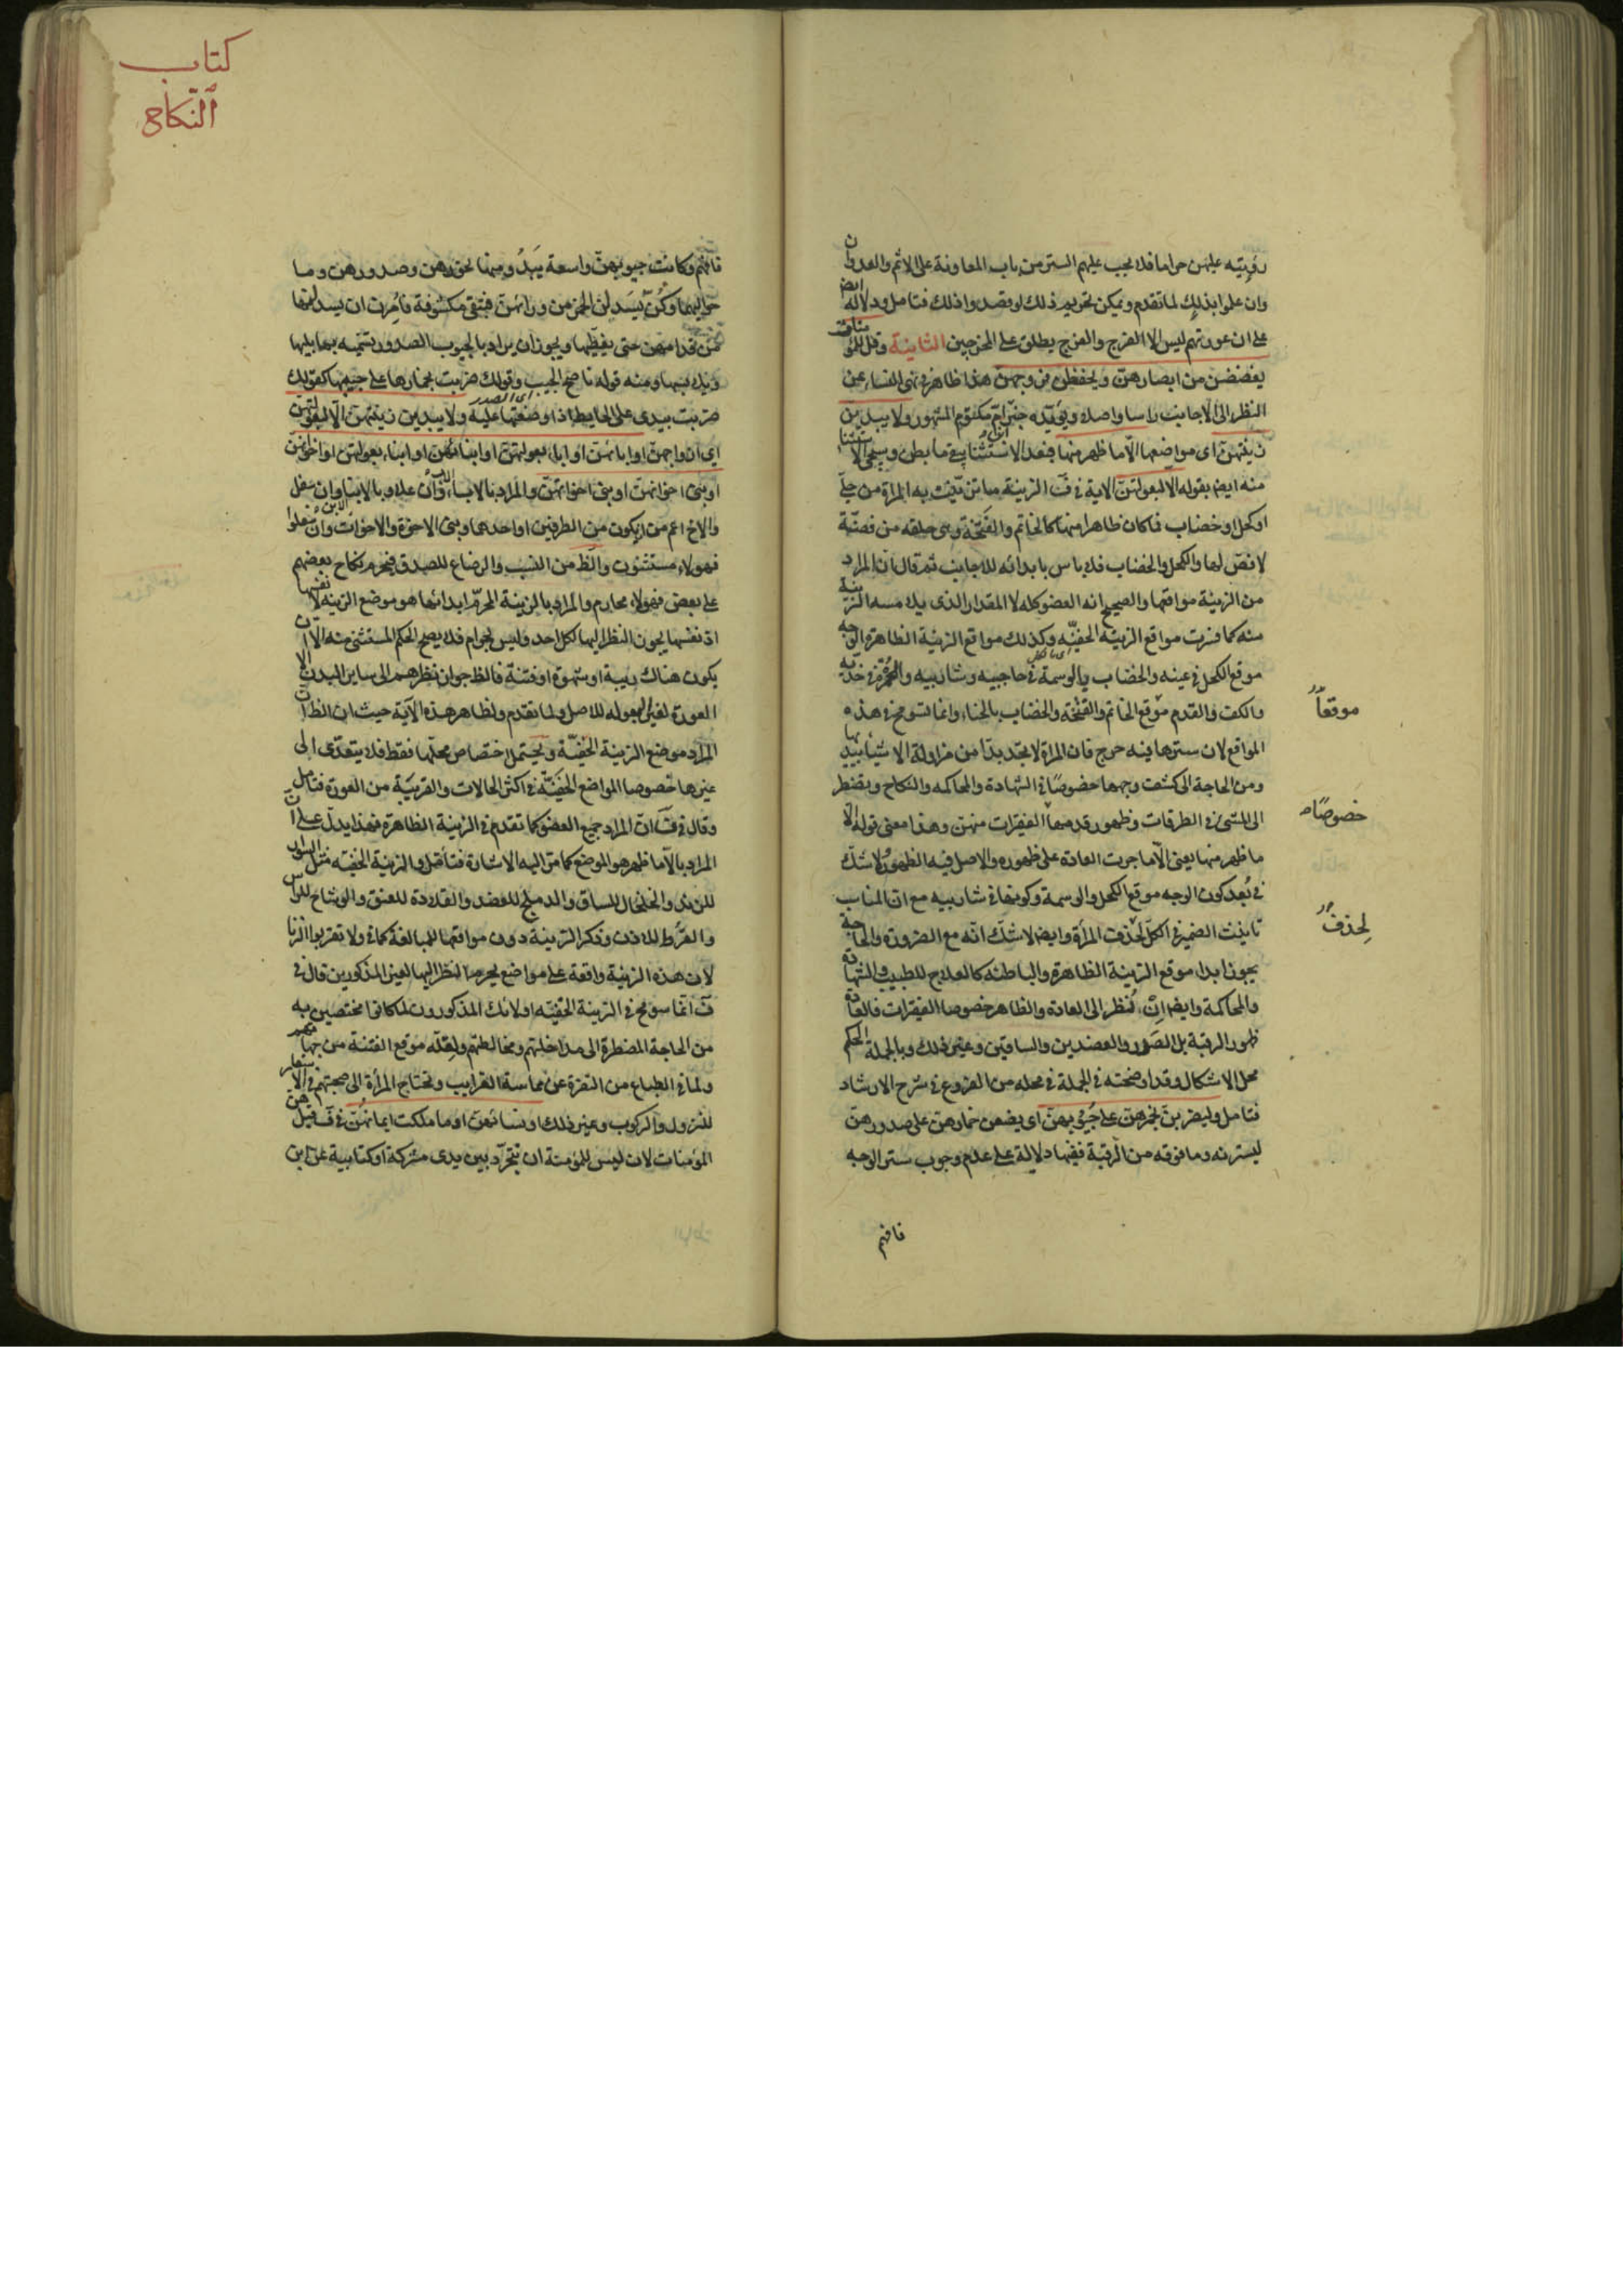 رؤيته عليهن حراما فلا يجب عليهم الستر من باب المعاونة على الاثم والعدوان
وان علموا بذلك لما تقدم ويمكن تحريم ذلك لو قصدوا ذلك فتامل ودلالة ايضا
على ان عورتهم ليس الا الفرج والفرج يطلق على المخرجين الثانية وقل للمؤمنات
يغضضن من ابصارهن ويحفظن فروجهن هذا ظاهر في نهي النساء عن
النظر الى الاجانب راسا واصلا ويؤيده خبر ام مكتوم المشهور ولا يبدين
زينتهن اى مواضعها الا ما ظهر منها فبعد الاستثناء بقى ما بطن وسيجئ الاستثناء
منه ايضا بقوله الا لبعولتهن الاية في ف الزينة ما تزينت به المراة من حلى
او كحل او خضاب فما كان ظاهرا منها كالخاتم والفتخة وهى حلقه من فضة
لا فص لها والكحل والخضاب فلا باس بابدائه للاجانب ثم قال ان المراد
من الزينة مواقعها والصحيح انه العضو كله لا المقدار الذى يلامسه الزينة
منه كما فسرت مواقع الزينة الخفية وكذلك مواقع الزينة الظاهرة الوجه
موقع الكحل في عينه والخضاب بالوسمة في حاجبيه وشاربيه والحمرة في خديه
والكف والقدم موقع الخاتم والفتخة والخضاب بالحناء وانما تسومح في هذه
موقعا
المواقع لان سترها فيه حرج فان المراة لا تجد بدا من مزاولة الاشياء بيديها
ومن الحاجة الى كشف وجهها خصوصا في الشهادة والمحاكمه والنكاح وتضطر
الى المشى في الطرقات وظهور قدميها الفقيرات منهن وهذا معنى قوله الا
خصوصا
ما ظهر منها يعنى الا ما جرت العادة على ظهوره والاصل فيه الظهور ولا شك
في بعد كون الوجه موقع الكحل والوسمة وكونها في شاربيه مع ان المناسب
تانيث الضمير في الكل لحذف المرأة وايضا لا شك انه مع الضرورة والحاجة
لحذف
يجوز ابداء موقع الزينة الظاهرة والباطنه كالعلاج للطبيب والشهادة
والمحاكمة وايضا ان نُظر الى العادة والظاهر خصوصا الفقيرات فالعادة
ظهور الرقبة بل الصدر والعضدين والساقين وغير ذلك وبالجملة الحكم
محل الاشكال وقد اوضحته في الجملة في محله من الفروع في شرح الارشاد
فتامل وليضربن بخمرهن على جيوبهن اى يضعن خمارهن على صدورهن
ليسترنه وما فوقه من الرقبة ففيها دلالة على عدم وجوب ستر الوجه
فافهم
كتاب
النكاح
فافهم وكانت جيوبهن واسعة يبدُ ومنها نحورهن وصدورهن وما
حواليها وكُنّ يسدلن الخمر من ورائهن فتبقى مكشوفة فاُمِرت ان يسدلنها
من قدامهن حتى يغطيها ويجوز ان يراد بالجيوب الصدور تسميه بما يليها
ويلابسها ومنه قوله ناصح الجيب وقولك ضربت بخمارها على جيبها كقولك
ضربت بيدى على الحايط اذا وضعتها عليه ولا يبدين زينتهن الا لبعولتهن
اى الصدر
اى ازواجهن او ابائهن او اباء بعولتهن او ابنائهن او ابناء بعولتهن او اخوانهن
او بنى اخوانهن او بنى اخواتهن والمراد بالاباء الاب وان علا وبالابناء الابن وان سفل
والاخ اعم من ان يكون من الطرفين او احدهما وبنى الاخوة والاخوات وان سفلوا
فهولاء مستثنون والظ من النسب والرضاع للصدق فيحرم نكاح بعضهم
على بعض فهولاء محارم والمراد بالزينة المحرّم ابدائها هو موضع الزينه لا نفسها
اذ نفسها يجوز النظر اليها لكل احد وليس بحرام فلا يصح الحكم المستثنى منه الا ان
يكون هناك ريبة او شهوة او فتنة فالظ جواز نظرهم الى ساير البدن الا
العورة لغير البعوله للاصل ولما تقدم ولظاهر هذه الآية حيث ان الظ ان
المراد موضع الزينة الخفيّة ويحتمل اختصاص محلها فقط فلا يتعدّى الى
غيرها خصوصا المواضع الخفيّة في اكثر الحالات والقريبة من العورة فتامل
وقال في ف ان المراد جميع العضو كما تقدم في الزينة الظاهرة فهذا يدل على ان
المراد بالا ما ظهر هو الموضع كما مر اليه الاشارة فتأمل والزينة الخفيه مثل السوار
للزند والخلخال للساق والدملج للعضد والقلادة للعنق والوشاح للراس
والقُرط للاذن وذكر الزينة دون مواقعها للمبالغة كما في ولا تقربوا الزنا
لان هذه الزينة واقعة على مواضع يحرم النظر اليها لغير المذكورين قال في
ف انما سومح في الزينة الخفيّه اولائك المذكورون لما كانوا مختصين به
من الحاجة المضطرة الى مداخلتهم ومخالطتهم ولقله موقع الفتنة من جهاتهم
ولما في الطباع من النفرة عن مماسة القرايب وتحتاج المرأة الى صحبتهم في الاسفار
للنزول والركوب وغير ذلك او نسائهن او ما ملكت ايمانهن في ف قيل هن
المؤمنات لان ليس للمؤمنة ان تتجرّد بين يدى مشركة او كتابية عن ابن